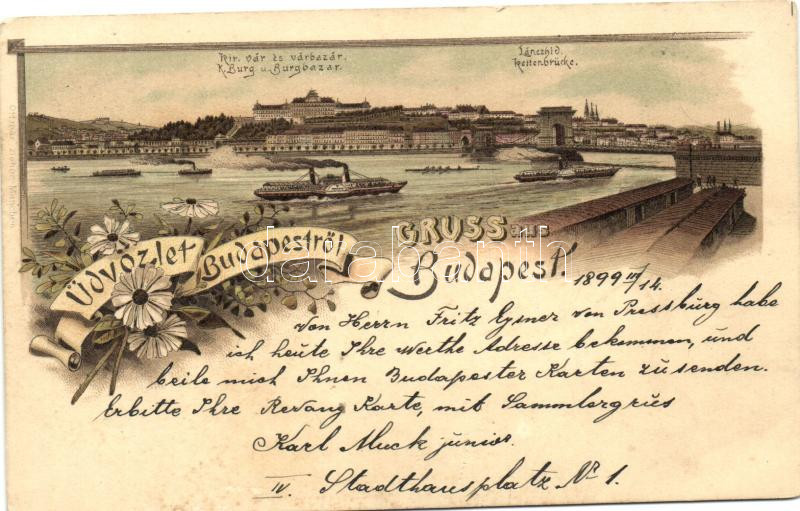 Kir. vár és várbazár.
K. Burg u. Burgbazar.
Lánczhid.
Kettenbrücke.
Üdvözlet Budapestről
GRUSS aus
Budapest.
1899 III/14.
Von Herrn Fritz Eysner von Pressburg habe
ich heute Ihre werthe Adresse bekommen, und
beile mich Ihnen Budapester Karten zu senden.
Erbitte Ihre Revang Karte, mit Sammlergrus
Karl Muck junior.
IV. Stadthausplatz No 1.
darabanth